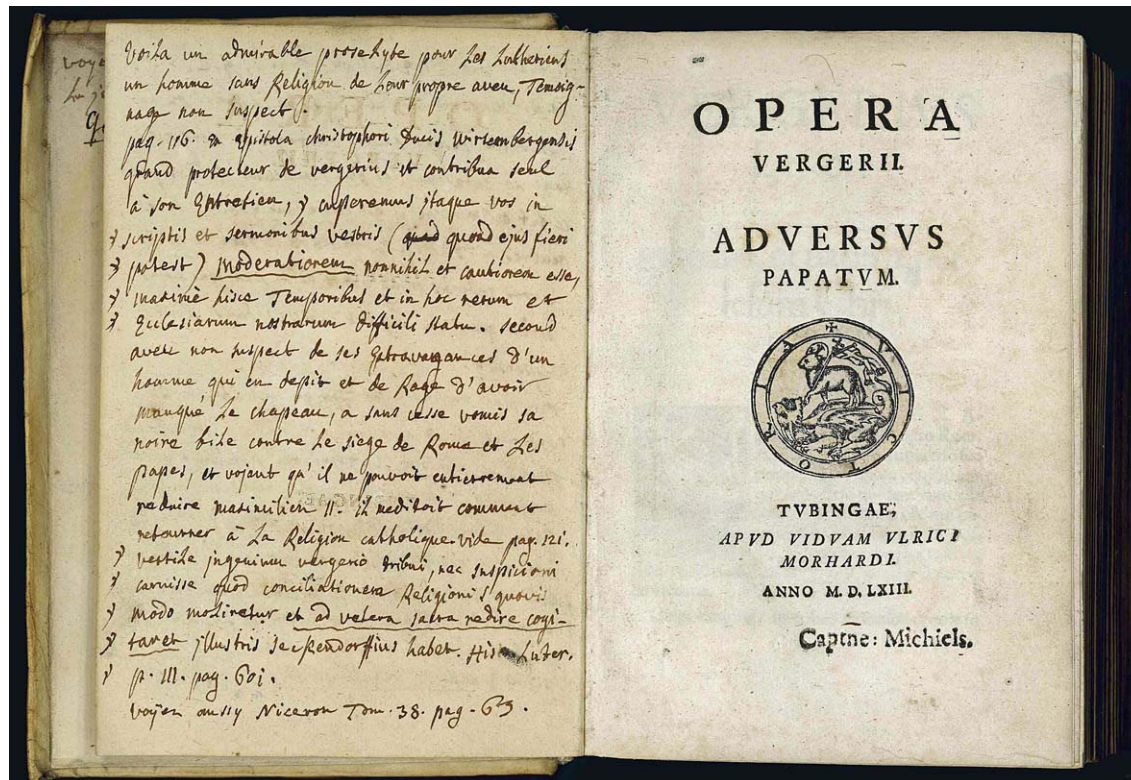 voye
La j
q
Voila un admirable proselyte pour Les Lutheriens
un homme sans Religion de Leur propre aveu, Temoig-
nage non suspect.
pag. 116. in Epistola christophori Ducis Wirtembergensis
grand protecteur de vergerius et contribua seul
à son Entretien, cuperemus itaque vos in
scriptis et sermonibus vestris (quoad ejus fieri
potest) moderatiorem nonnihil et cautiorem esse,
maximè hisce Temporibus et in hoc rerum et
Ecclesiarum nostrarum difficili statu. second
aveu non suspect de ses Extravagances d'un
homme qui en depit et de Rage d'avoir
manqué Le chapeau, a sans cesse vomis sa
noire bile contre Le siege de Rome et Les
papes, et vojant qu'il ne pouvoit entierement
reduire maximilien II. il meditoit comment
retourner à La Religion catholique. vide pag. 121.
versile ingenium vergerio tribui, nec suspicioni
carnisse quod conciliationem Religionis quovis
modo moliretur et ad vetera sacra redire cogi-
taret illustris seckendorffius habet. Hist. Luter.
p. III. pag. 601.
voÿez aussy Niceron Tom. 38. pag.
OPERA
VERGERII.
ADVERSVS
PAPATVM.
VICTORIA
TVBINGAE,
APVD VIDVAM VLRICI
MORHARDI.
ANNO M. D. LXIII.
Captne: Michiels.